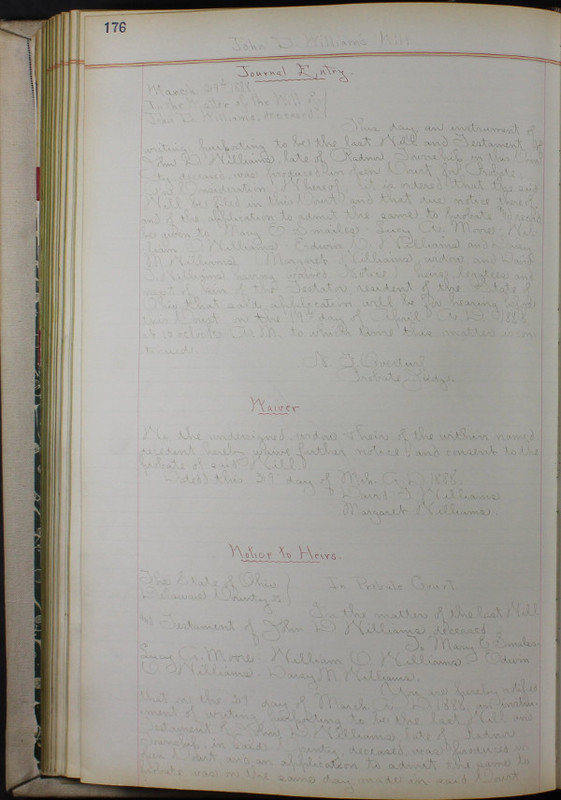 176
John D. Williams Will
Journal Entry.
March 29th, 188
In the Matter of the Will of
John D. Williams, deceased
This day, an instrument of
writing, purporting to be the last Will and Testament of
John D. Williams, late of Radnor Township in this Coun
ty, deceased, was produced in open Court for Probate;
Consideration Whereof, it is ordered that the said
Will be filed in this Court and that due notice thereof
and of the application to admit the same to Probate
be given to Mary E. Lucy A. Moore, Wil
liam O. Williams, Edwin D. Williams and
M. Williams Margaret Williams, widow and David
Williams having waived Notice heirs, legatees and
next of kin of the Testator, resident of the State of
Ohio, that said application will be for hearing before
this Court, on the 17th day of April A. D. 1888
at o'clock A. M. to which time this matter is con
tinued.
Probate Judge.
Waiver
We, the undersigned, widow & heir of the within named
decedent, hereby waive further notice, and consent to the
probate of said Will.
this 29th day of Mch. A. D. 1888.
David Williams
Margaret Williams.
Notice to Heirs.
The State of Ohio
Delaware County, ss
In Probate Court
In the matter of the last Will
& Testament of John D. Williams, deceased
To Mary E.
Lucy A. Moore William O. Williams Edwin
D. Williams M. Williams.
You are hereby notified
that on the 29 day of March A. D. 1888, an instru
ment of writing, purporting to be the last Will and
Testament of John D. Williams, late of Radnor
Township in said County, deceased, was produced in
open Court and an application to admit the same to
Probate was on the same day made in said Court